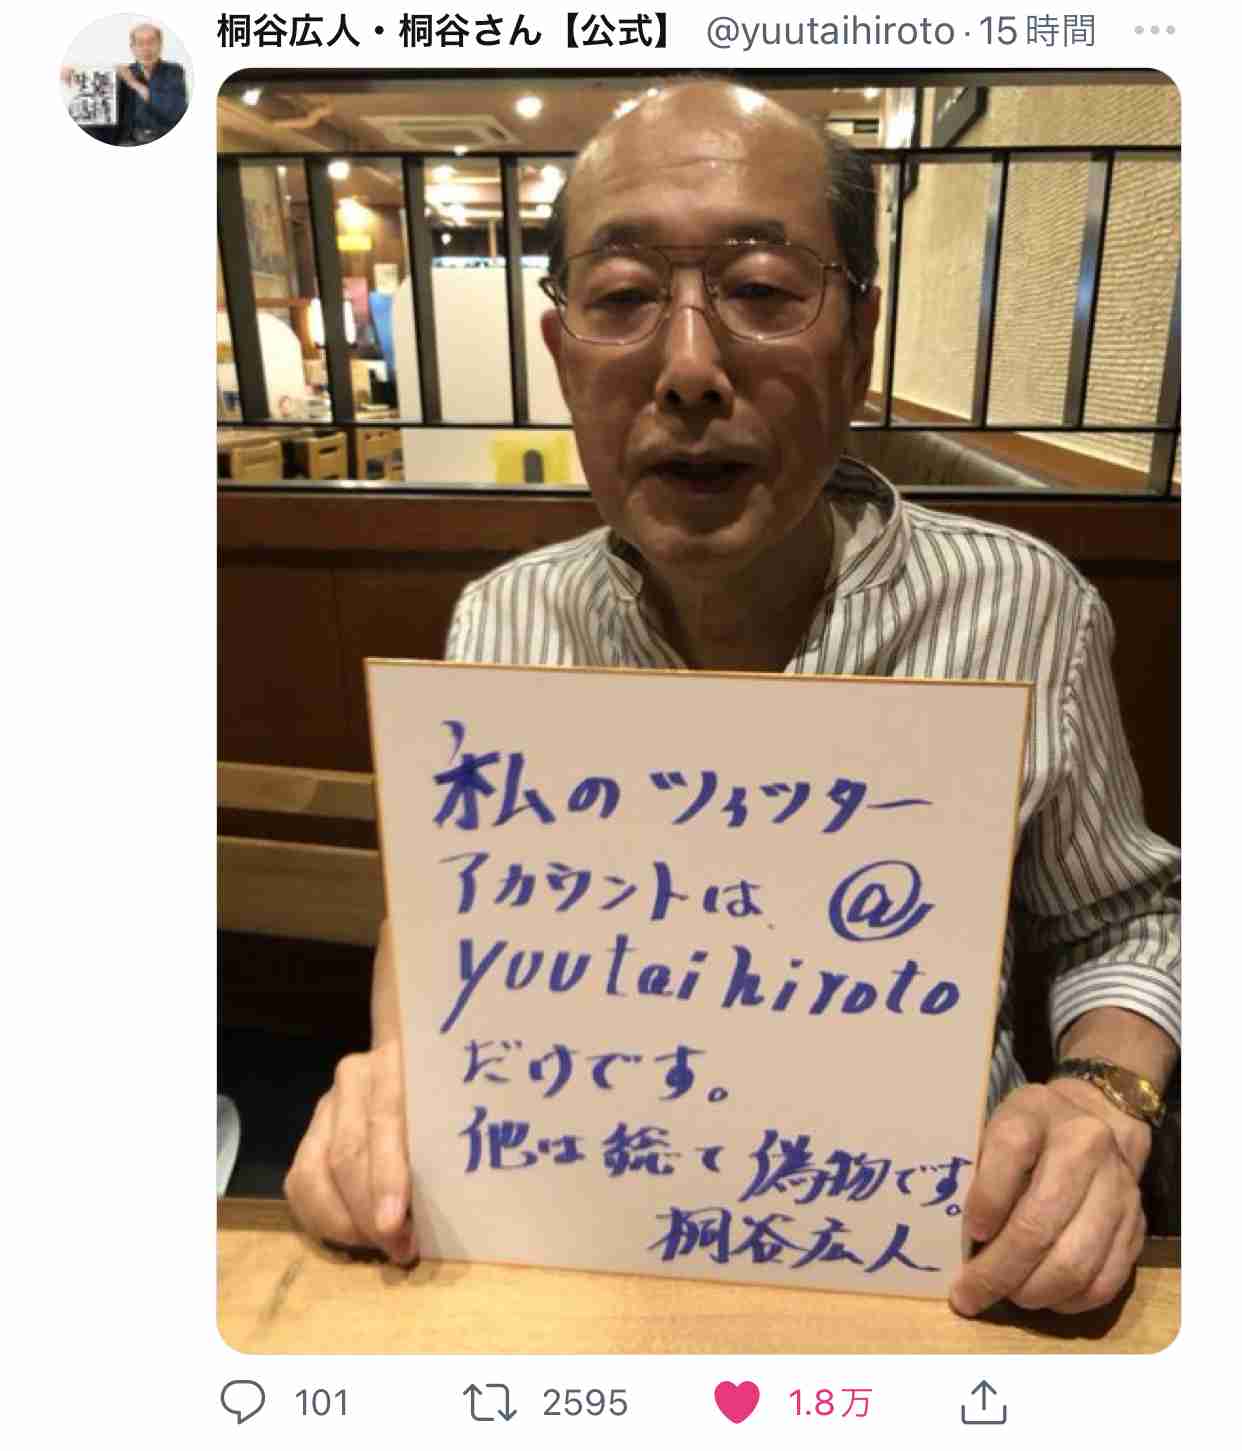 桐谷広人・桐谷さん【公式】 @yuutaihiroto・15時間
私のツイッター
アカウントは、@
yuutaihiroto
だけです。
他は総て偽物です。
桐谷広人
101 2595 1.8万